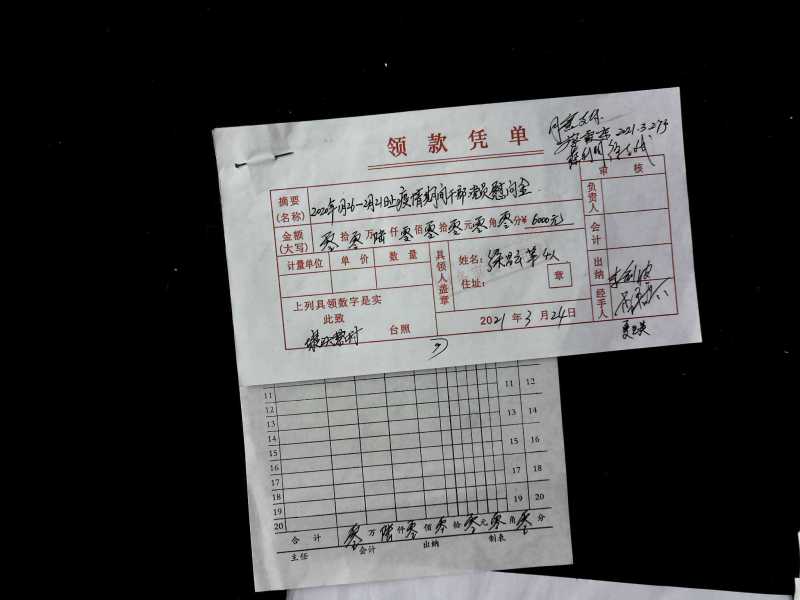 领款凭单
同意支付
2021.3.27
审核
摘要(名称) 2020年1月26-2月21日止疫情期间干部党员慰问金
金额(大写) 零拾零万陆仟零佰零拾零元零角零分¥6000元
计量单位 单价 数量
具领人盖章
姓名:
住址:
章
负责人
会计
出纳
经手人
上列具领数字是实
此致
台照
2021年3月24日
11 11 12
12
13 13 14
14
15 15 16
16
17 17 18
18
19 19 20
20
合计 零万陆仟零佰零拾零元零角零分
主任 会计 出纳 制表